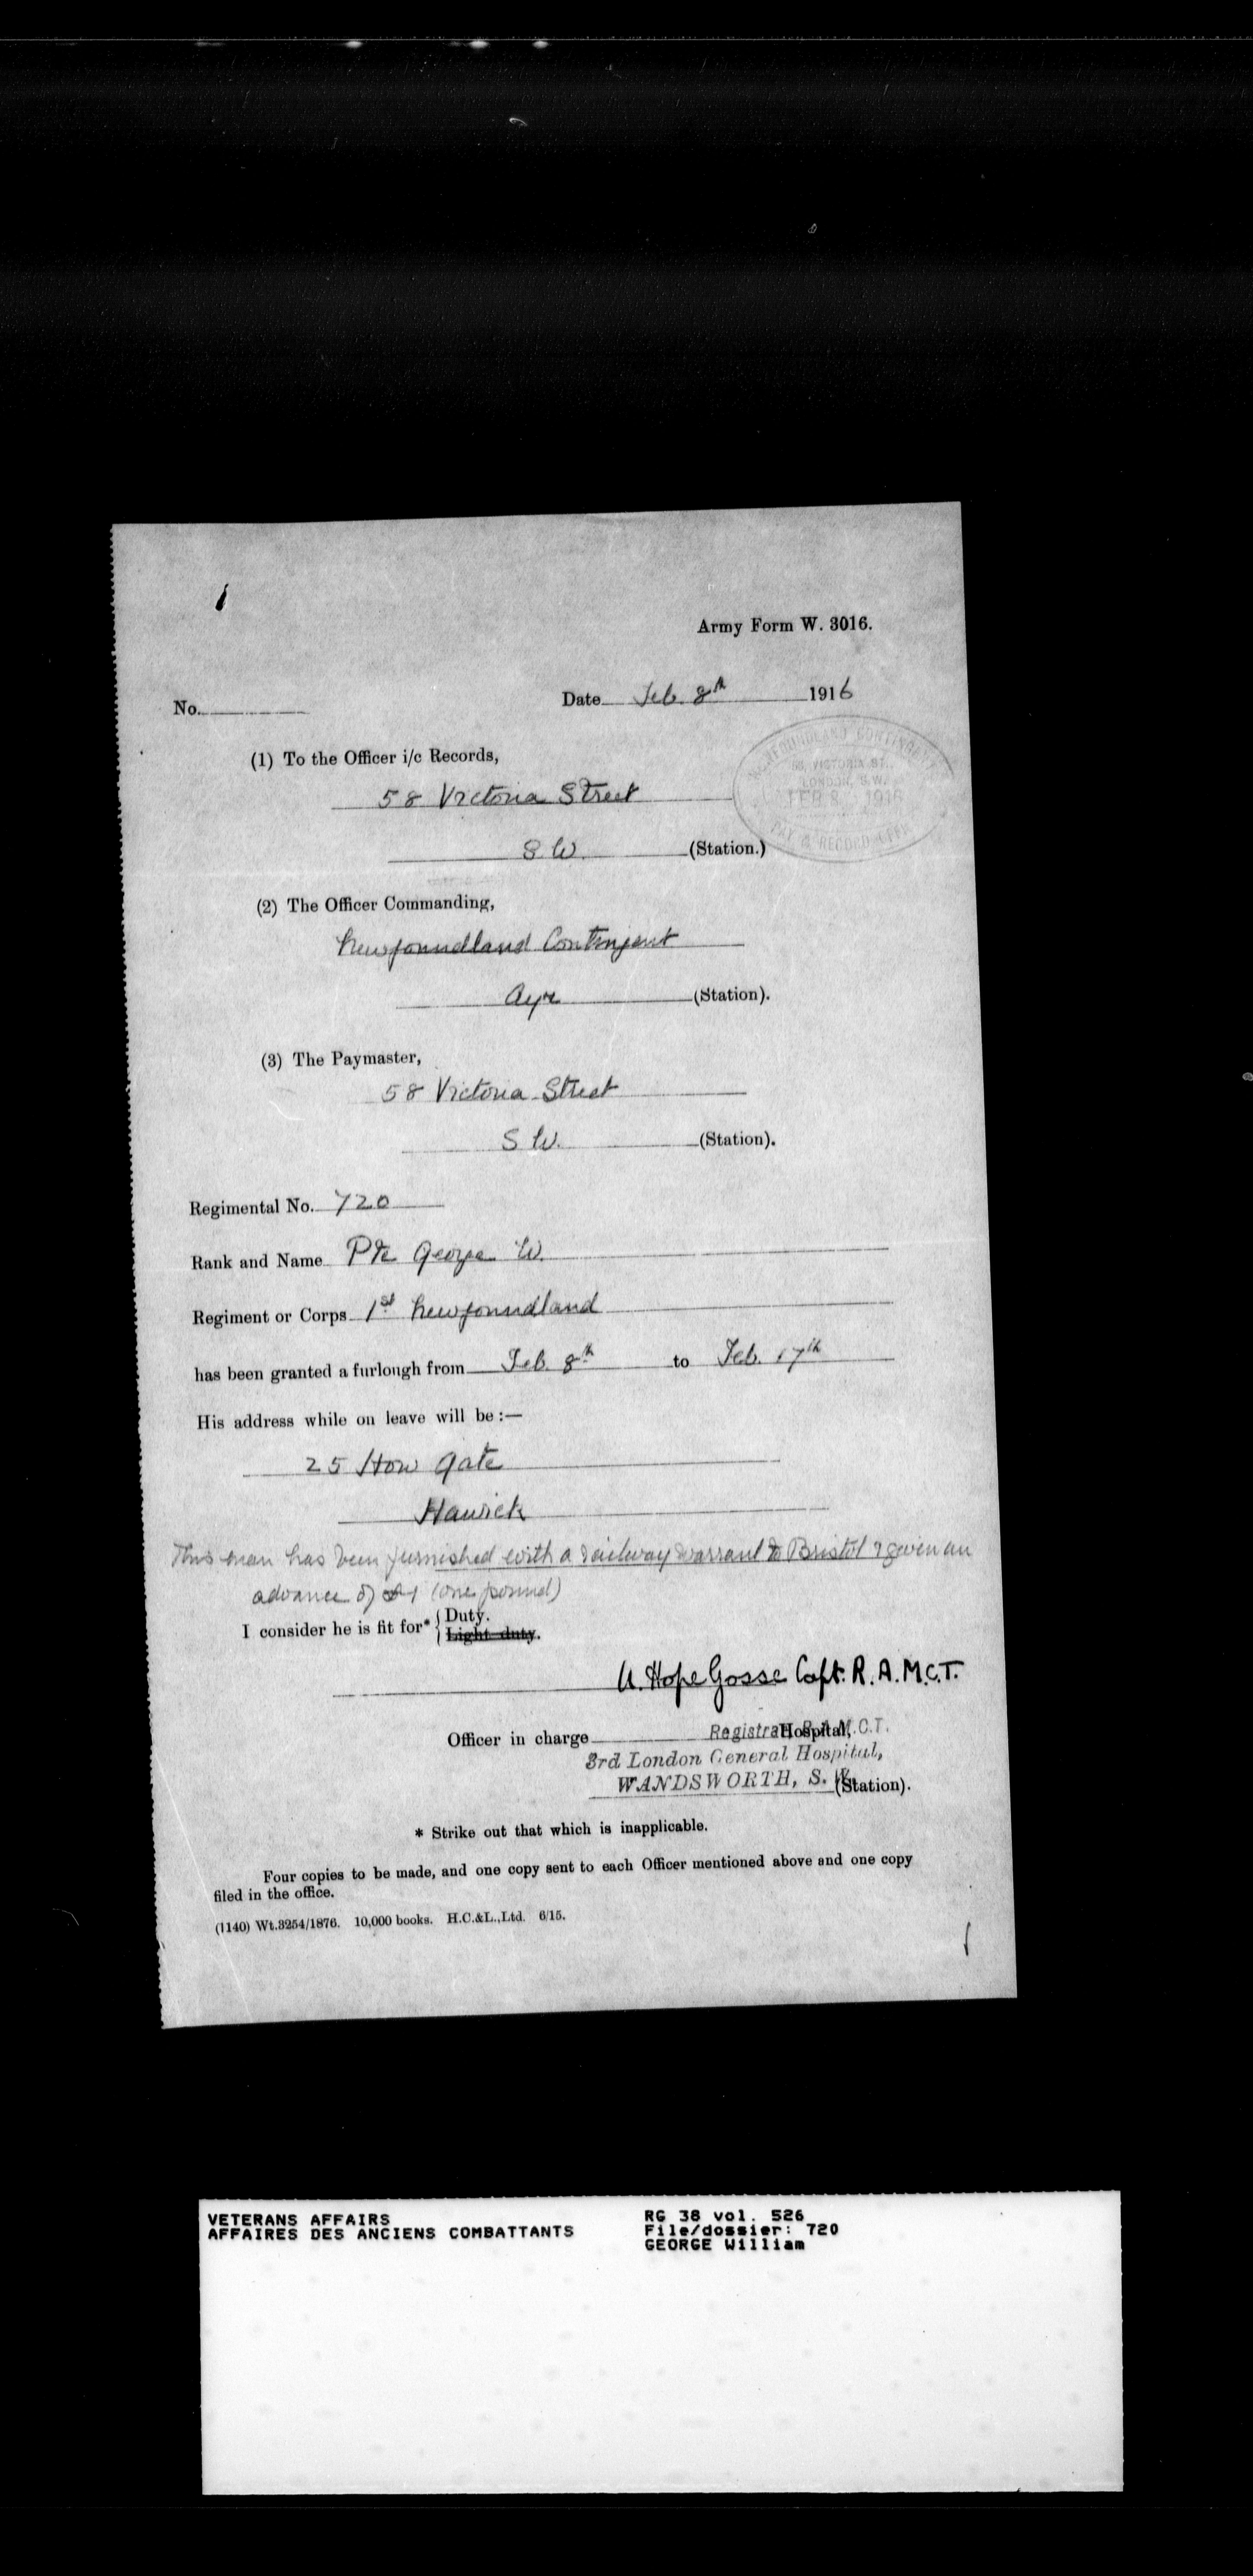 Army Form W. 3016.
No. Date Feb. 8th 1916
(1) To the Officer i/c Records,
58 Victoria Street
S.W. (Station.)
NEWFOUNDLAND CONTINGENT
58, VICTORIA ST.,
LONDON, S.W.
FEB 8 1916
PAY & RECORD OFFICE
(2) The Officer Commanding,
Newfoundland Contingent
Ayr (Station).
(3) The Paymaster,
58 Victoria Street
S W. (Station).
Regimental No. 720
Rank and Name Pte George W.
Regiment or Corps 1st Newfoundland
has been granted a furlough from Feb. 8th to Feb. 17th
His address while on leave will be :—
25 How gate
Hawick
This man has been furnished with a railway warrant to Bristol & given an
advance of £1 (one pound)
I consider he is fit for* { Duty.
Light duty.
Hope Gosse Capt. R.A.M.C.T.
Officer in charge Hospital,
Registrar R.A.M.C.T.
3rd London General Hospital,
WANDSWORTH, S.W. (Station).
* Strike out that which is inapplicable.
Four copies to be made, and one copy sent to each Officer mentioned above and one copy
filed in the office.
(1140) Wt.3254/1876. 10,000 books. H.C.&L.,Ltd. 6/15.
VETERANS AFFAIRS RG 38 vol. 526
AFFAIRES DES ANCIENS COMBATTANTS File/dossier: 720
GEORGE William